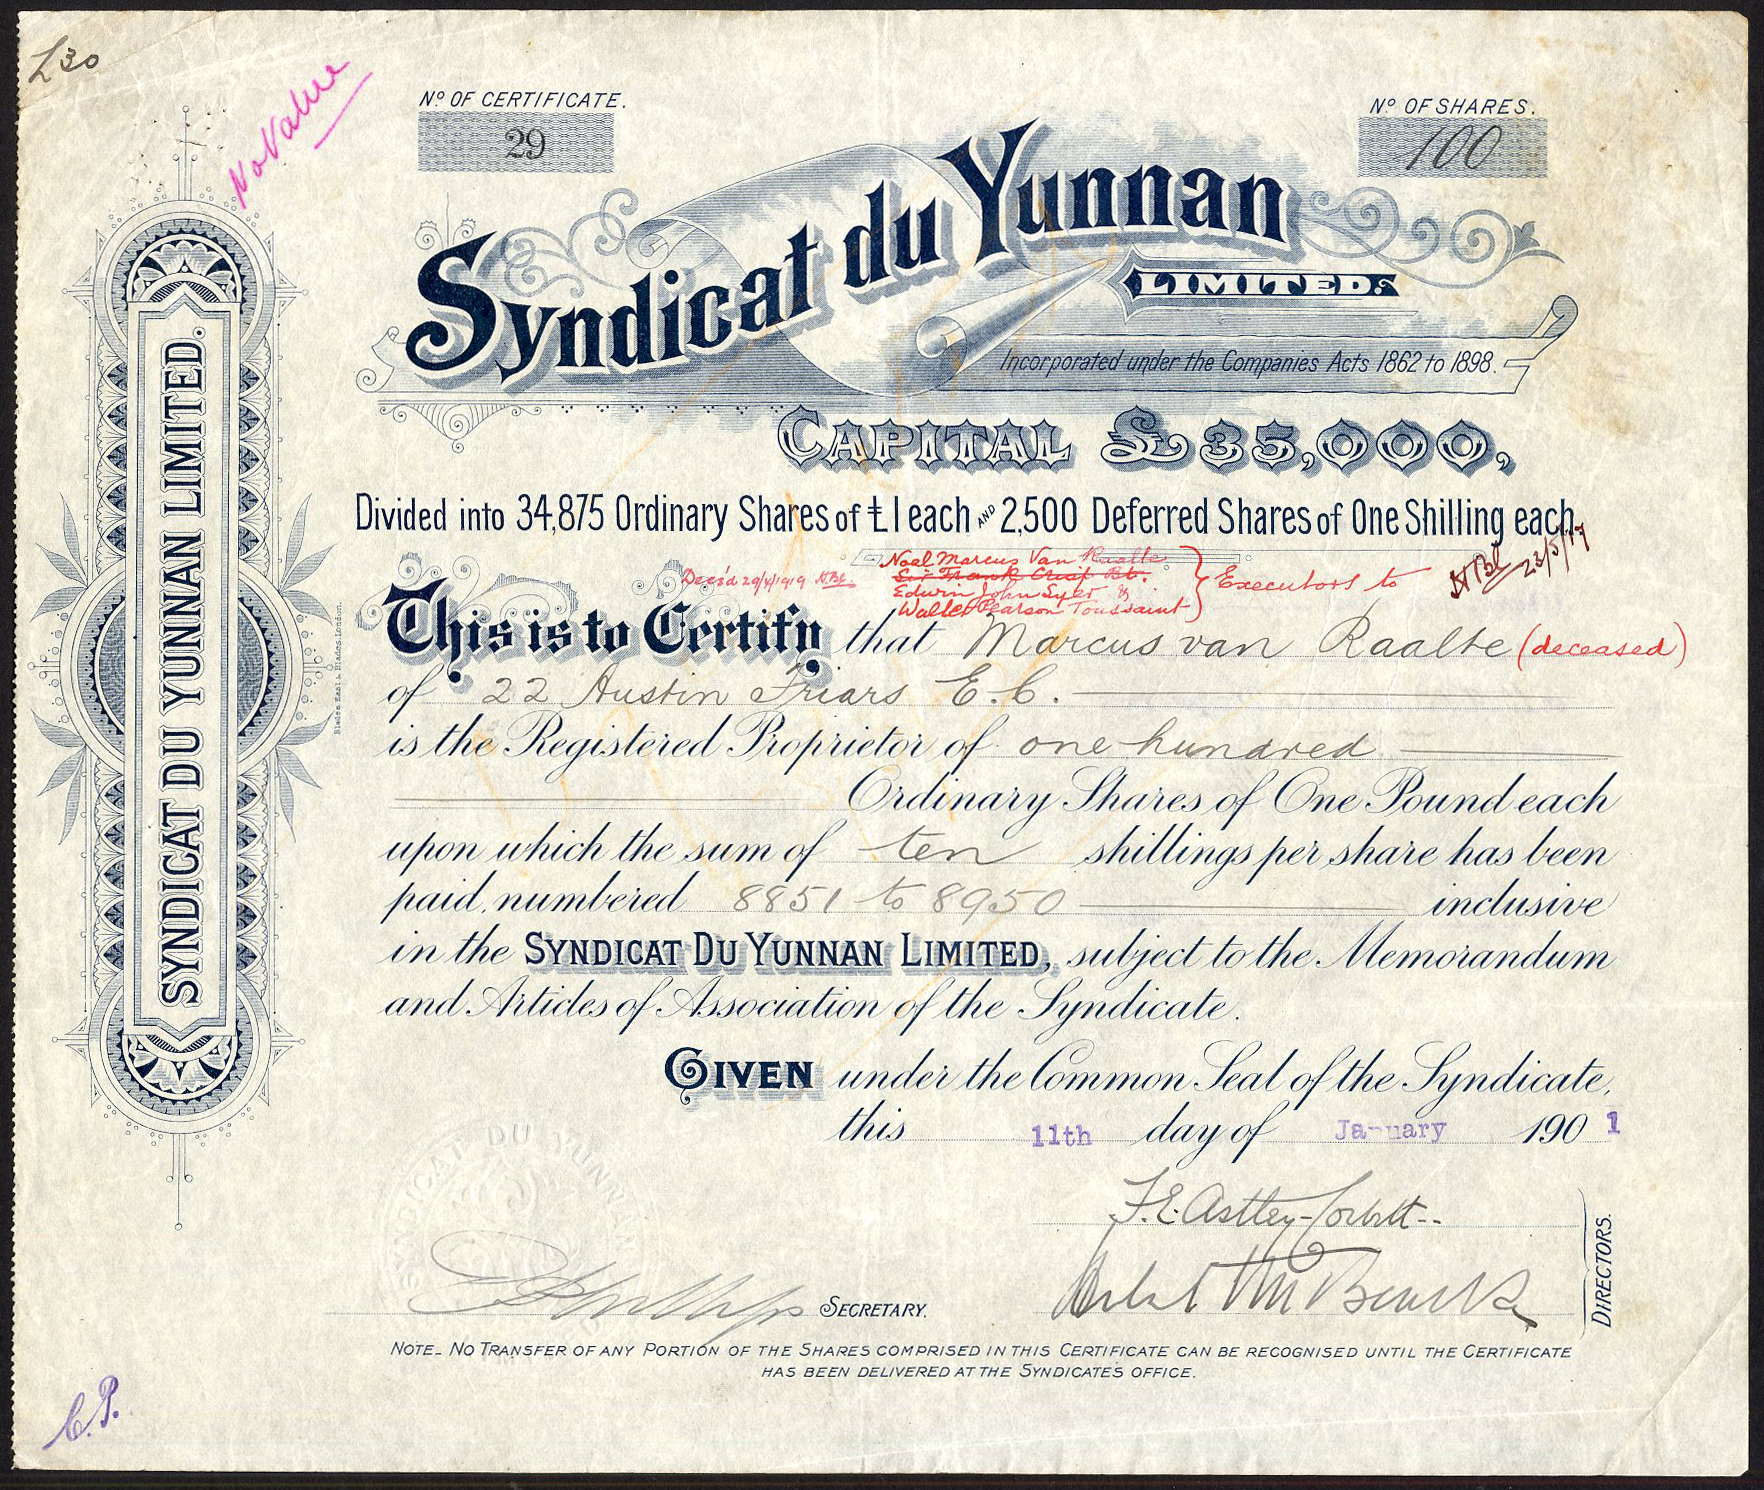 £30
No Value
Nº OF CERTIFICATE.
29
Nº OF SHARES.
100
Syndicat du Yunnan
LIMITED.
Incorporated under the Companies Acts 1862 to 1898.
CAPITAL £35,000,
Divided into 34,875 Ordinary Shares of £1 each AND 2,500 Deferred Shares of One Shilling each.
Noel Marcus Van Raalte
Dec'd 29/4/1919 Sir Frank Crisp Bt.
Edwin John Syer &
Walter Pearson Toussaint
Executors to
23/5/17
This is to Certify that Marcus van Raalte (deceased)
of 22 Austin Friars E.C.
is the Registered Proprietor of one hundred
Ordinary Shares of One Pound each
upon which the sum of ten shillings per share has been
paid, numbered 8851 to 8950 inclusive
in the SYNDICAT DU YUNNAN LIMITED, subject to the Memorandum
and Articles of Association of the Syndicate.
GIVEN under the Common Seal of the Syndicate,
this 11th day of January 1901
F. E. Astley-Corbett
SECRETARY.
DIRECTORS.
NOTE_ NO TRANSFER OF ANY PORTION OF THE SHARES COMPRISED IN THIS CERTIFICATE CAN BE RECOGNISED UNTIL THE CERTIFICATE
HAS BEEN DELIVERED AT THE SYNDICATES OFFICE.
C.P.
SYNDICAT DU YUNNAN LIMITED.
Blades East & Blades, London.